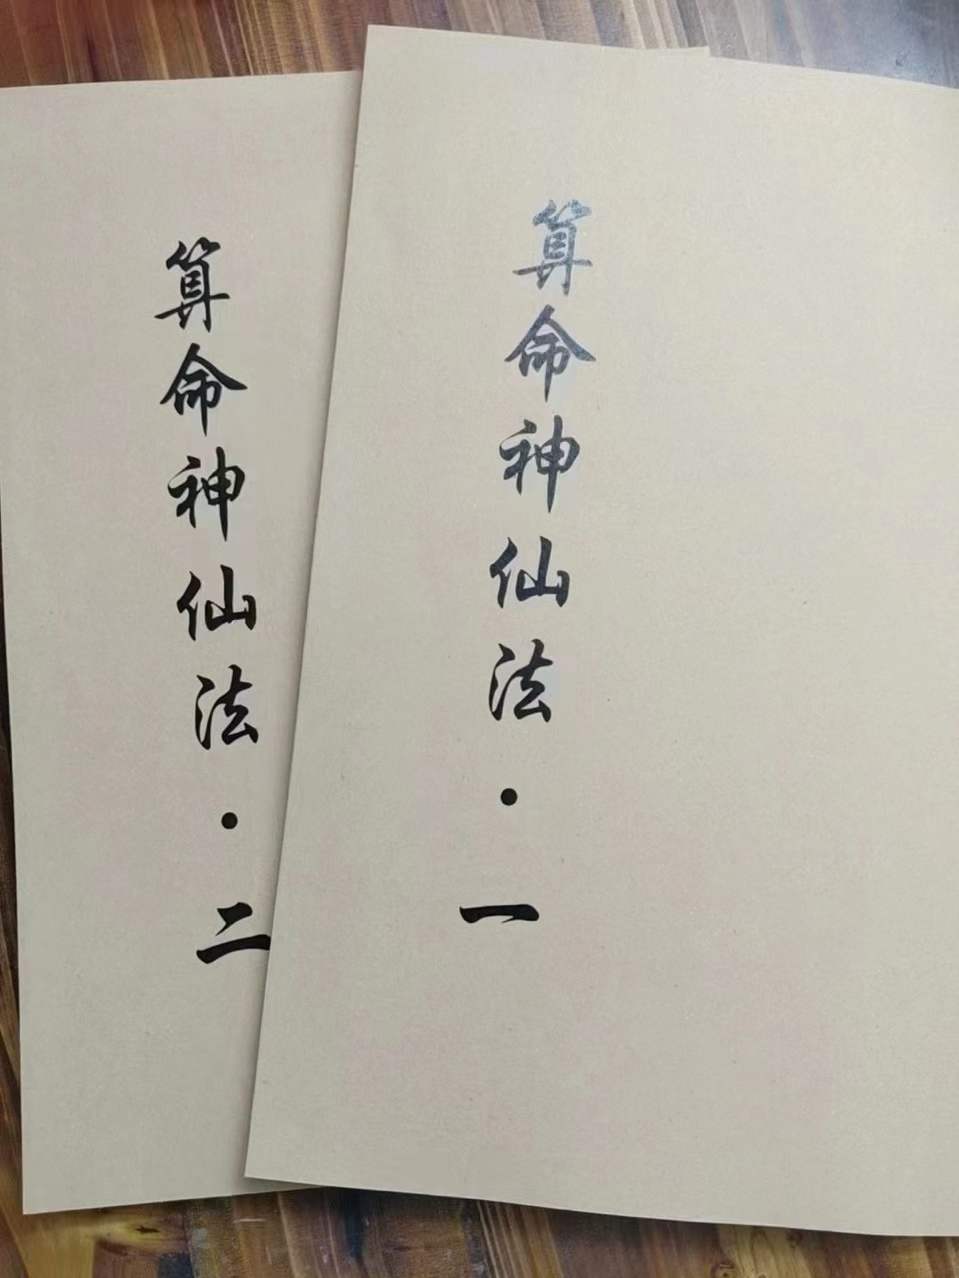 算命神仙法·一
算命神仙法·二